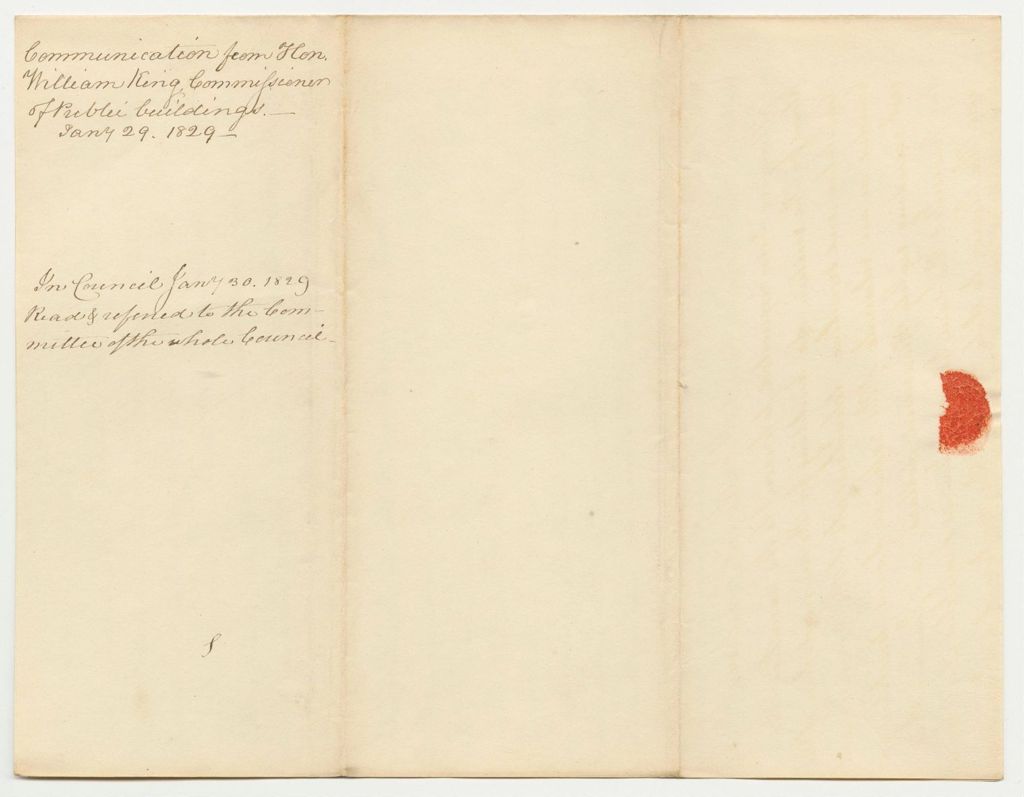 Communication from Hon.
William King, Commissioner
of Public buildings. —
Jany 29. 1829 —
In Council Jany 30. 1829
Read & referred to the Com-
mittee of the whole Council —